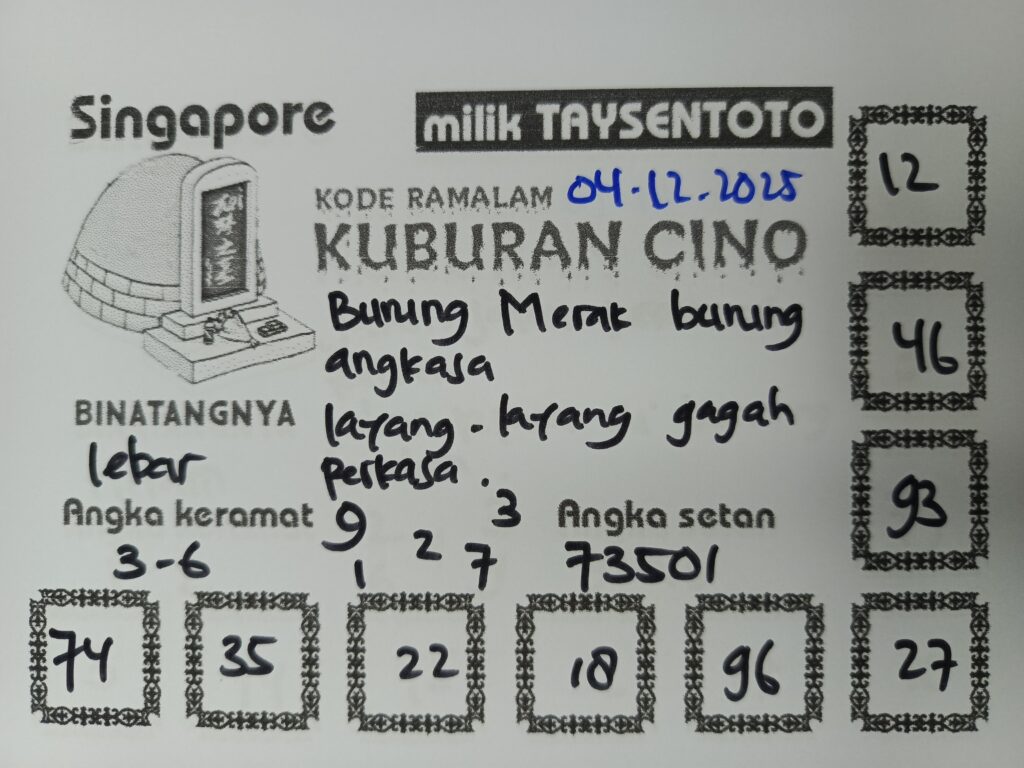 Singapore
milik TAYSENTOTO
KODE RAMALAM 04.12.2025
KUBURAN CINO
Burung Merak burung
angkasa
layang-layang gagah
perkasa.
BINATANGNYA
lebar
Angka keramat
3-6
9 3
2
1 7
Angka setan
73501
12
46
93
74 35 22 18 96 27